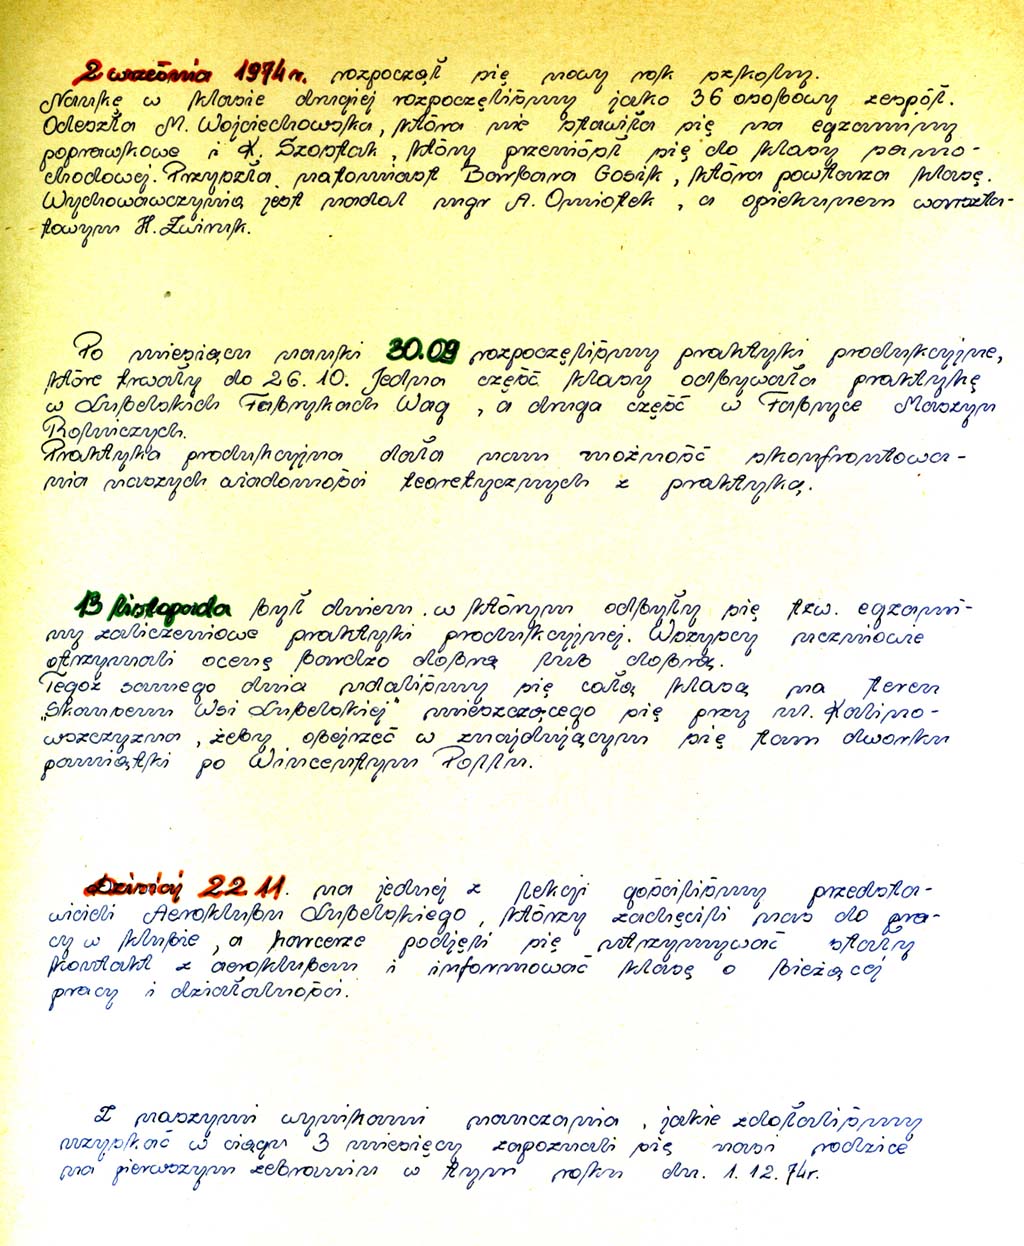 2 września 1974 r. rozpoczął się nowy rok szkolny.
Naukę w klasie drugiej rozpoczęliśmy jako 36 osobowy zespół.
Odeszła M. Wojciechowska, która nie stawiła się na egzaminy
poprawkowe i K. Szostak, który przeniósł się do klasy samo-
chodowej. Przyszła natomiast Barbara Gosik, która powtarza klasę.
Wychowawczynią jest nadal mgr A. Omiotek, a opiekunem warszta-
towym H. Zwinik.
Po miesiącu nauki 30.09 rozpoczęliśmy praktyki produkcyjne,
które trwały do 26.10. Jedna część klasy odbywała praktykę
w Lubelskich Fabrykach Wag, a druga część w Fabryce Maszyn
Rolniczych.
Praktyka produkcyjna dała nam możność skonfrontowa-
nia naszych wiadomości teoretycznych z praktyką.
13 listopada był dniem w którym odbyły się tzw. egzami-
ny zaliczeniowe praktyki produkcyjnej. Wszyscy uczniowie
otrzymali ocenę bardzo dobrą lub dobrą.
Tegoż samego dnia udaliśmy się całą klasą na teren
"Skansenu Wsi Lubelskiej" mieszczącego się przy ul. Kalino-
wszczyzna, żeby obejrzeć w znajdującym się tam dworku
pamiątki po Wincentym Pollu.
Dzisiaj 22.11. na jednej z lekcji gościliśmy przedsta-
wicieli Aeroklubu Lubelskiego, którzy zachęcili nas do pra-
cy w klubie, a harcerze podjęli się utrzymywać stały
kontakt z aeroklubem i informować klasę o bieżącej
pracy i działalności.
Z naszymi wynikami nauczania, jakie zdołaliśmy
uzyskać w ciągu 3 miesięcy zapoznali się nasi rodzice
na pierwszym zebraniu w tym roku dn. 1.12.74r.